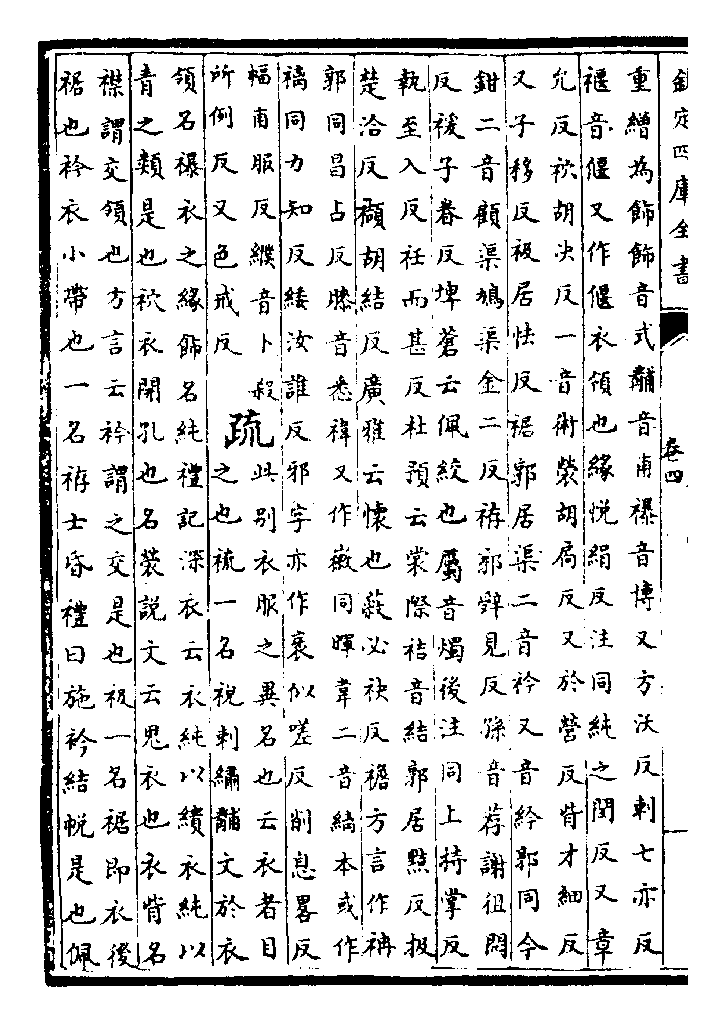 欽定四庫全書
卷四
重繒為飾飾音式黼音甫襮音博又方沃反刺七亦反
褗音偃又作偃衣領也緣悅絹反注同純之閏反又章
允反袕胡決反一音術褮胡扃反又於營反眥才細反
又子移反衱居怯反裾郭居渠二音衿又音紟郭同今
鉗二音顧渠鳩渠金二反袸郭辤見反孫音荐謝徂悶
反褑子眷反埤蒼云佩絞也屬音燭後注同上持掌反
執至入反衽而甚反杜預云裳際袺音結郭居黠反扱
楚洽反襭胡結反廣雅云懷也蔽必袂反襜方言作袡
郭同昌占反膝音悉褘又作徽同暉韋二音縭本或作
褵同力知反緌汝誰反邪字亦作衺似嗟反削息畧反
幅甫服反纀音卜殺
所例反又色戒反
疏
此別衣服之異名也云衣者目
之也梳一名祝刺繡黼文於衣
領名襮衣之緣飾名純禮記深衣云衣純以繢衣純以
青之類是也袕衣開孔也名褮說文云鬼衣也衣眥名
襟謂交領也方言云衿謂之交是也衱一名裾即衣後
裾也衿衣小帶也一名袸士昏禮曰施衿結帨是也佩